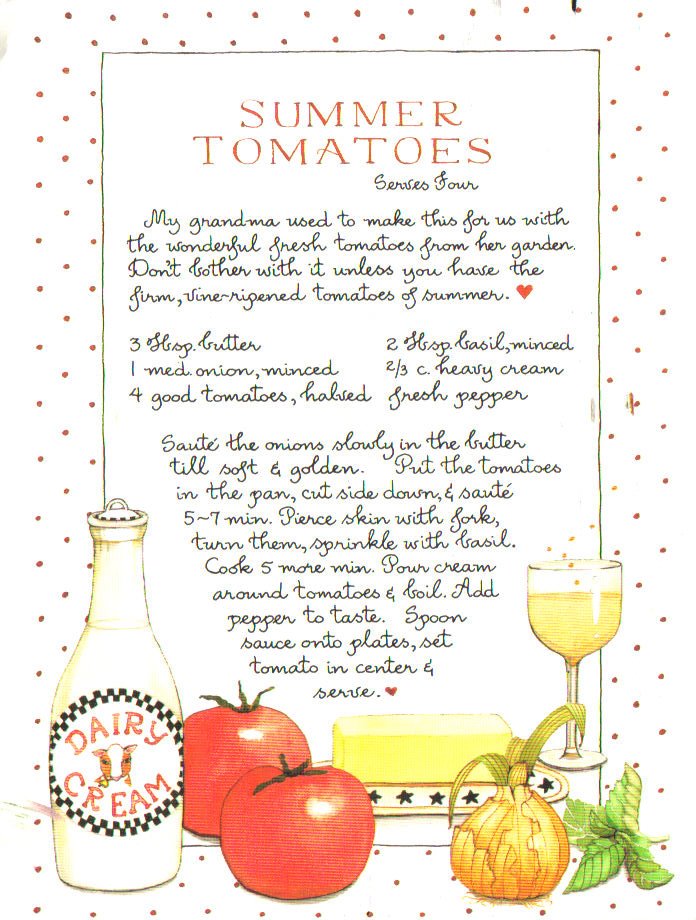 SUMMER
TOMATOES
Serves Four
My grandma used to make this for us with
the wonderful fresh tomatoes from her garden.
Don't bother with it unless you have the
firm, vine-ripened tomatoes of summer. ♥
3 Tbsp. butter
1 med. onion, minced
4 good tomatoes, halved
2 Tbsp. basil, minced
2/3 c. heavy cream
fresh pepper
Sauté the onions slowly in the butter
till soft & golden. Put the tomatoes
in the pan, cut side down, & sauté
5~7 min. Pierce skin with fork,
turn them, sprinkle with basil.
Cook 5 more min. Pour cream
around tomatoes & boil. Add
pepper to taste. Spoon
sauce onto plates, set
tomato in center &
serve. ♥
DAIRY
CREAM